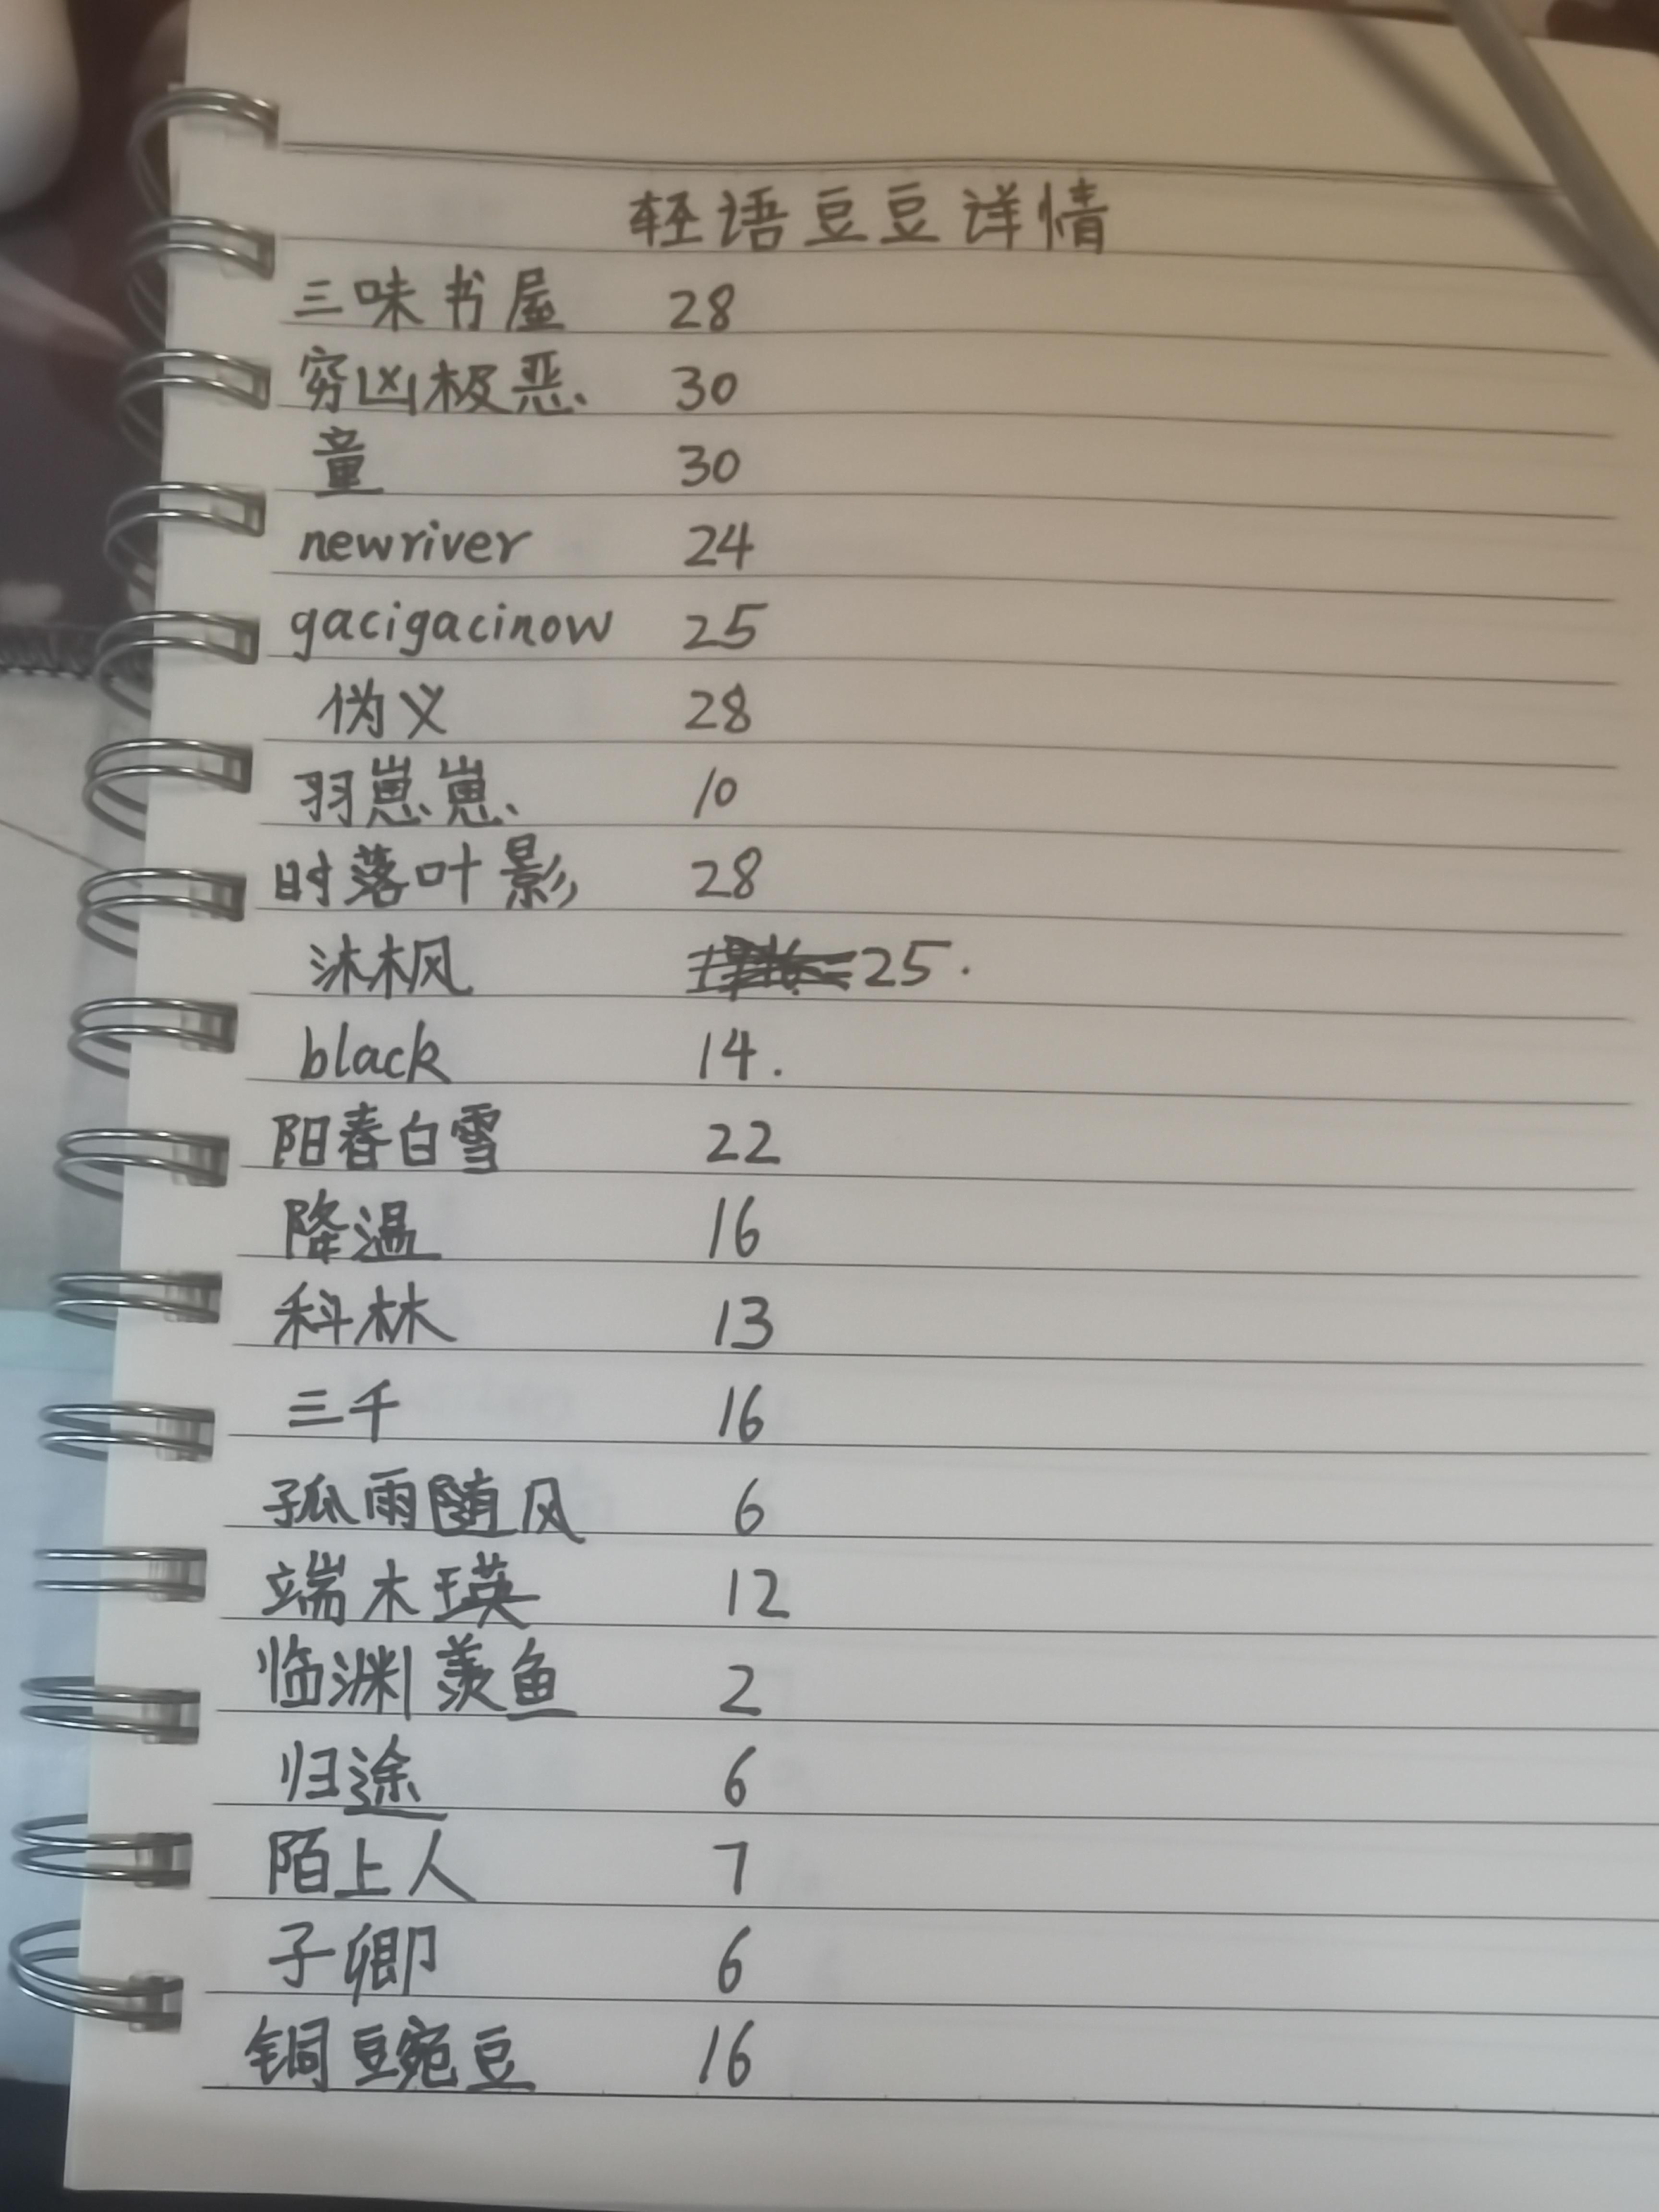 轻语豆豆详情
三味书屋 28
穷凶极恶 30
童 30
newriver 24
gacigacinow 25
伪义 28
羽崽崽 10
时落叶影 28
沐枫 25.
black 14.
阳春白雪 22
降温 16
科林 13
三千 16
孤雨随风 6
端木瑛 12
临渊羡鱼 2
归途 6
陌上人 7
子卿 6
铜豌豆 16